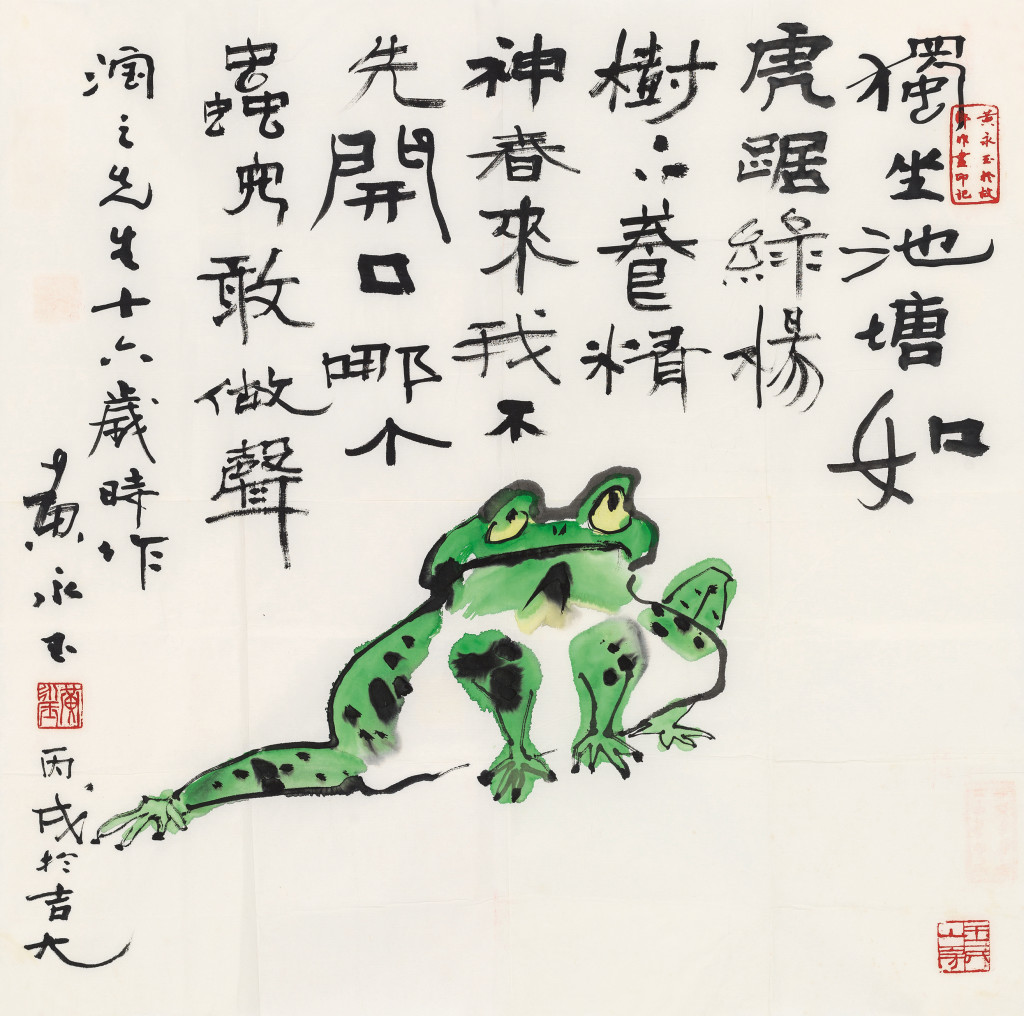 獨坐池塘如
虎踞綠楊
樹下養精
神春來我不
先開口哪个
蟲兒敢做聲
润之先生十六歲時作
黄永玉
丙戌於吉大
黄永玉於故
鄉作畫印記
黄永玉
玉氏山房